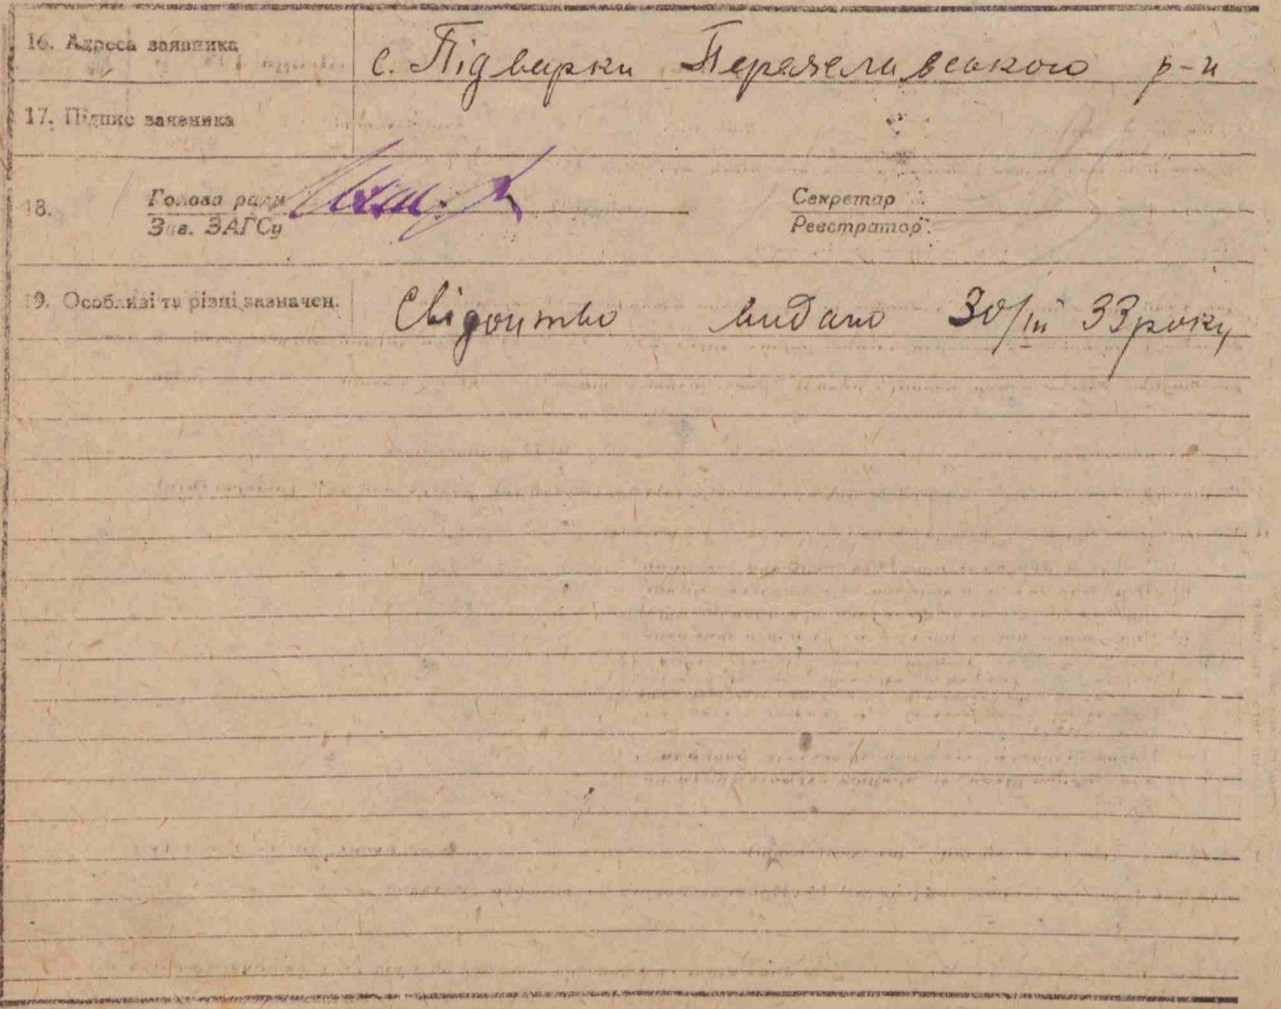 16. Адреса заявника с. Підварки Переяславського р-н
17. Підпис заявника
18. Голова ради Секретар
Зав. ЗАГСу Реєстратор
19. Особливі та різні зазначен. Свідоцтво видано 30/III 33 року